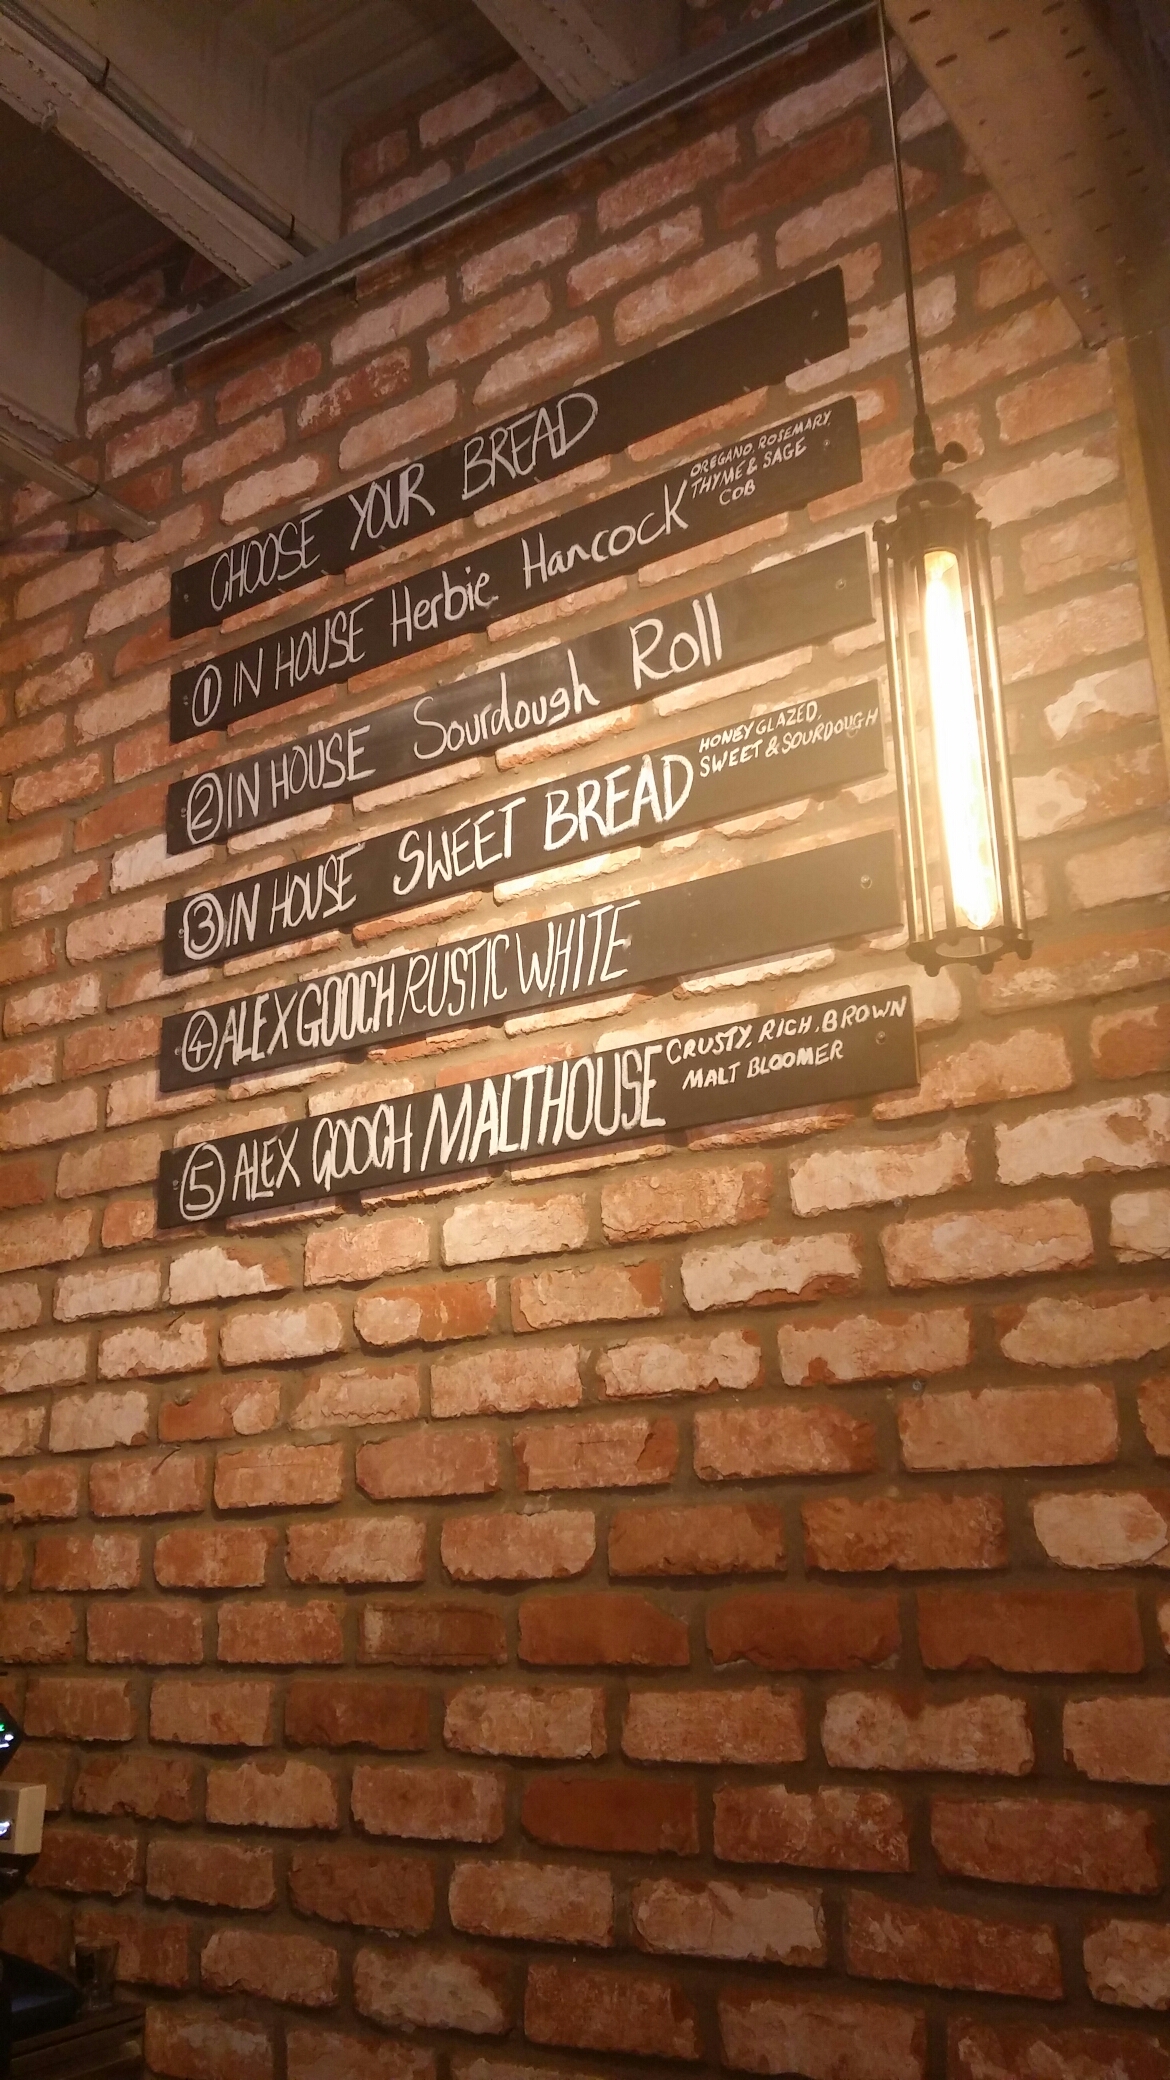 CHOOSE YOUR BREAD
1 IN HOUSE Herbie Hancock OREGANO, ROSEMARY, THYME & SAGE COB
2 IN HOUSE Sourdough Roll
3 IN HOUSE SWEET BREAD HONEY GLAZED, SWEET & SOURDOUGH
4 ALEX GOOCH RUSTIC WHITE
5 ALEX GOOCH MALTHOUSE CRUSTY, RICH, BROWN MALT BLOOMER